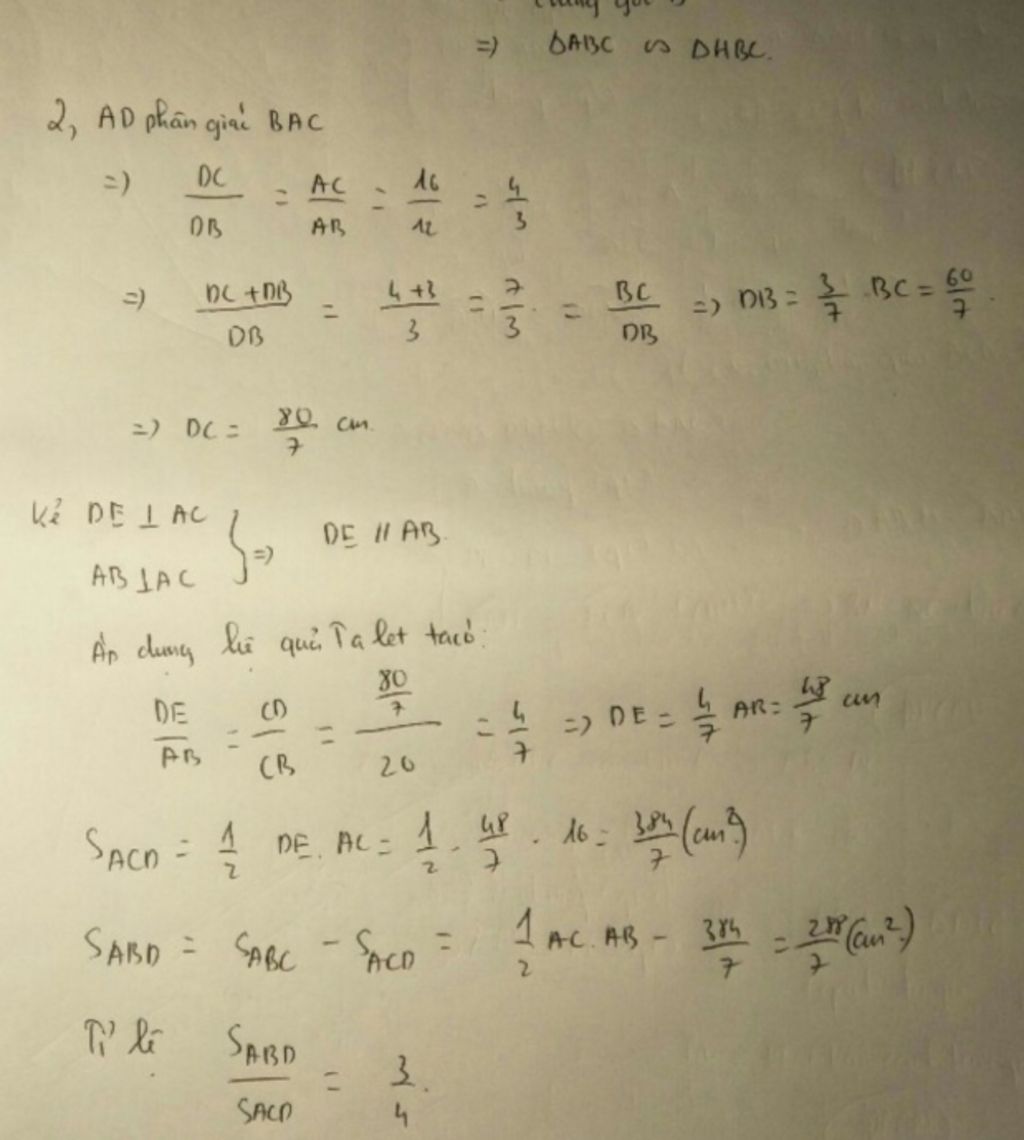 => ΔABC ∽ ΔHBC.
2, AD phân giác BAC
=> DC/DB = AC/AB = 16/12 = 4/3
=> (DC+DB)/DB = (4+3)/3 = 7/3 = BC/DB => DB = 3/7 . BC = 60/7.
=> DC = 80/7 cm.
Kẻ DE ⊥ AC
AB ⊥ AC } => DE // AB.
Áp dụng hệ quả Ta let ta có:
DE/AB = CD/CB = (80/7)/20 = 4/7 => DE = 4/7 AB = 48/7 cm
S_ACD = 1/2 DE. AC = 1/2 . 48/7 . 16 = 384/7 (cm²)
S_ABD = S_ABC - S_ACD = 1/2 AC. AB - 384/7 = 288/7 (cm²)
Tỉ lệ S_ABD/S_ACD = 3/4.